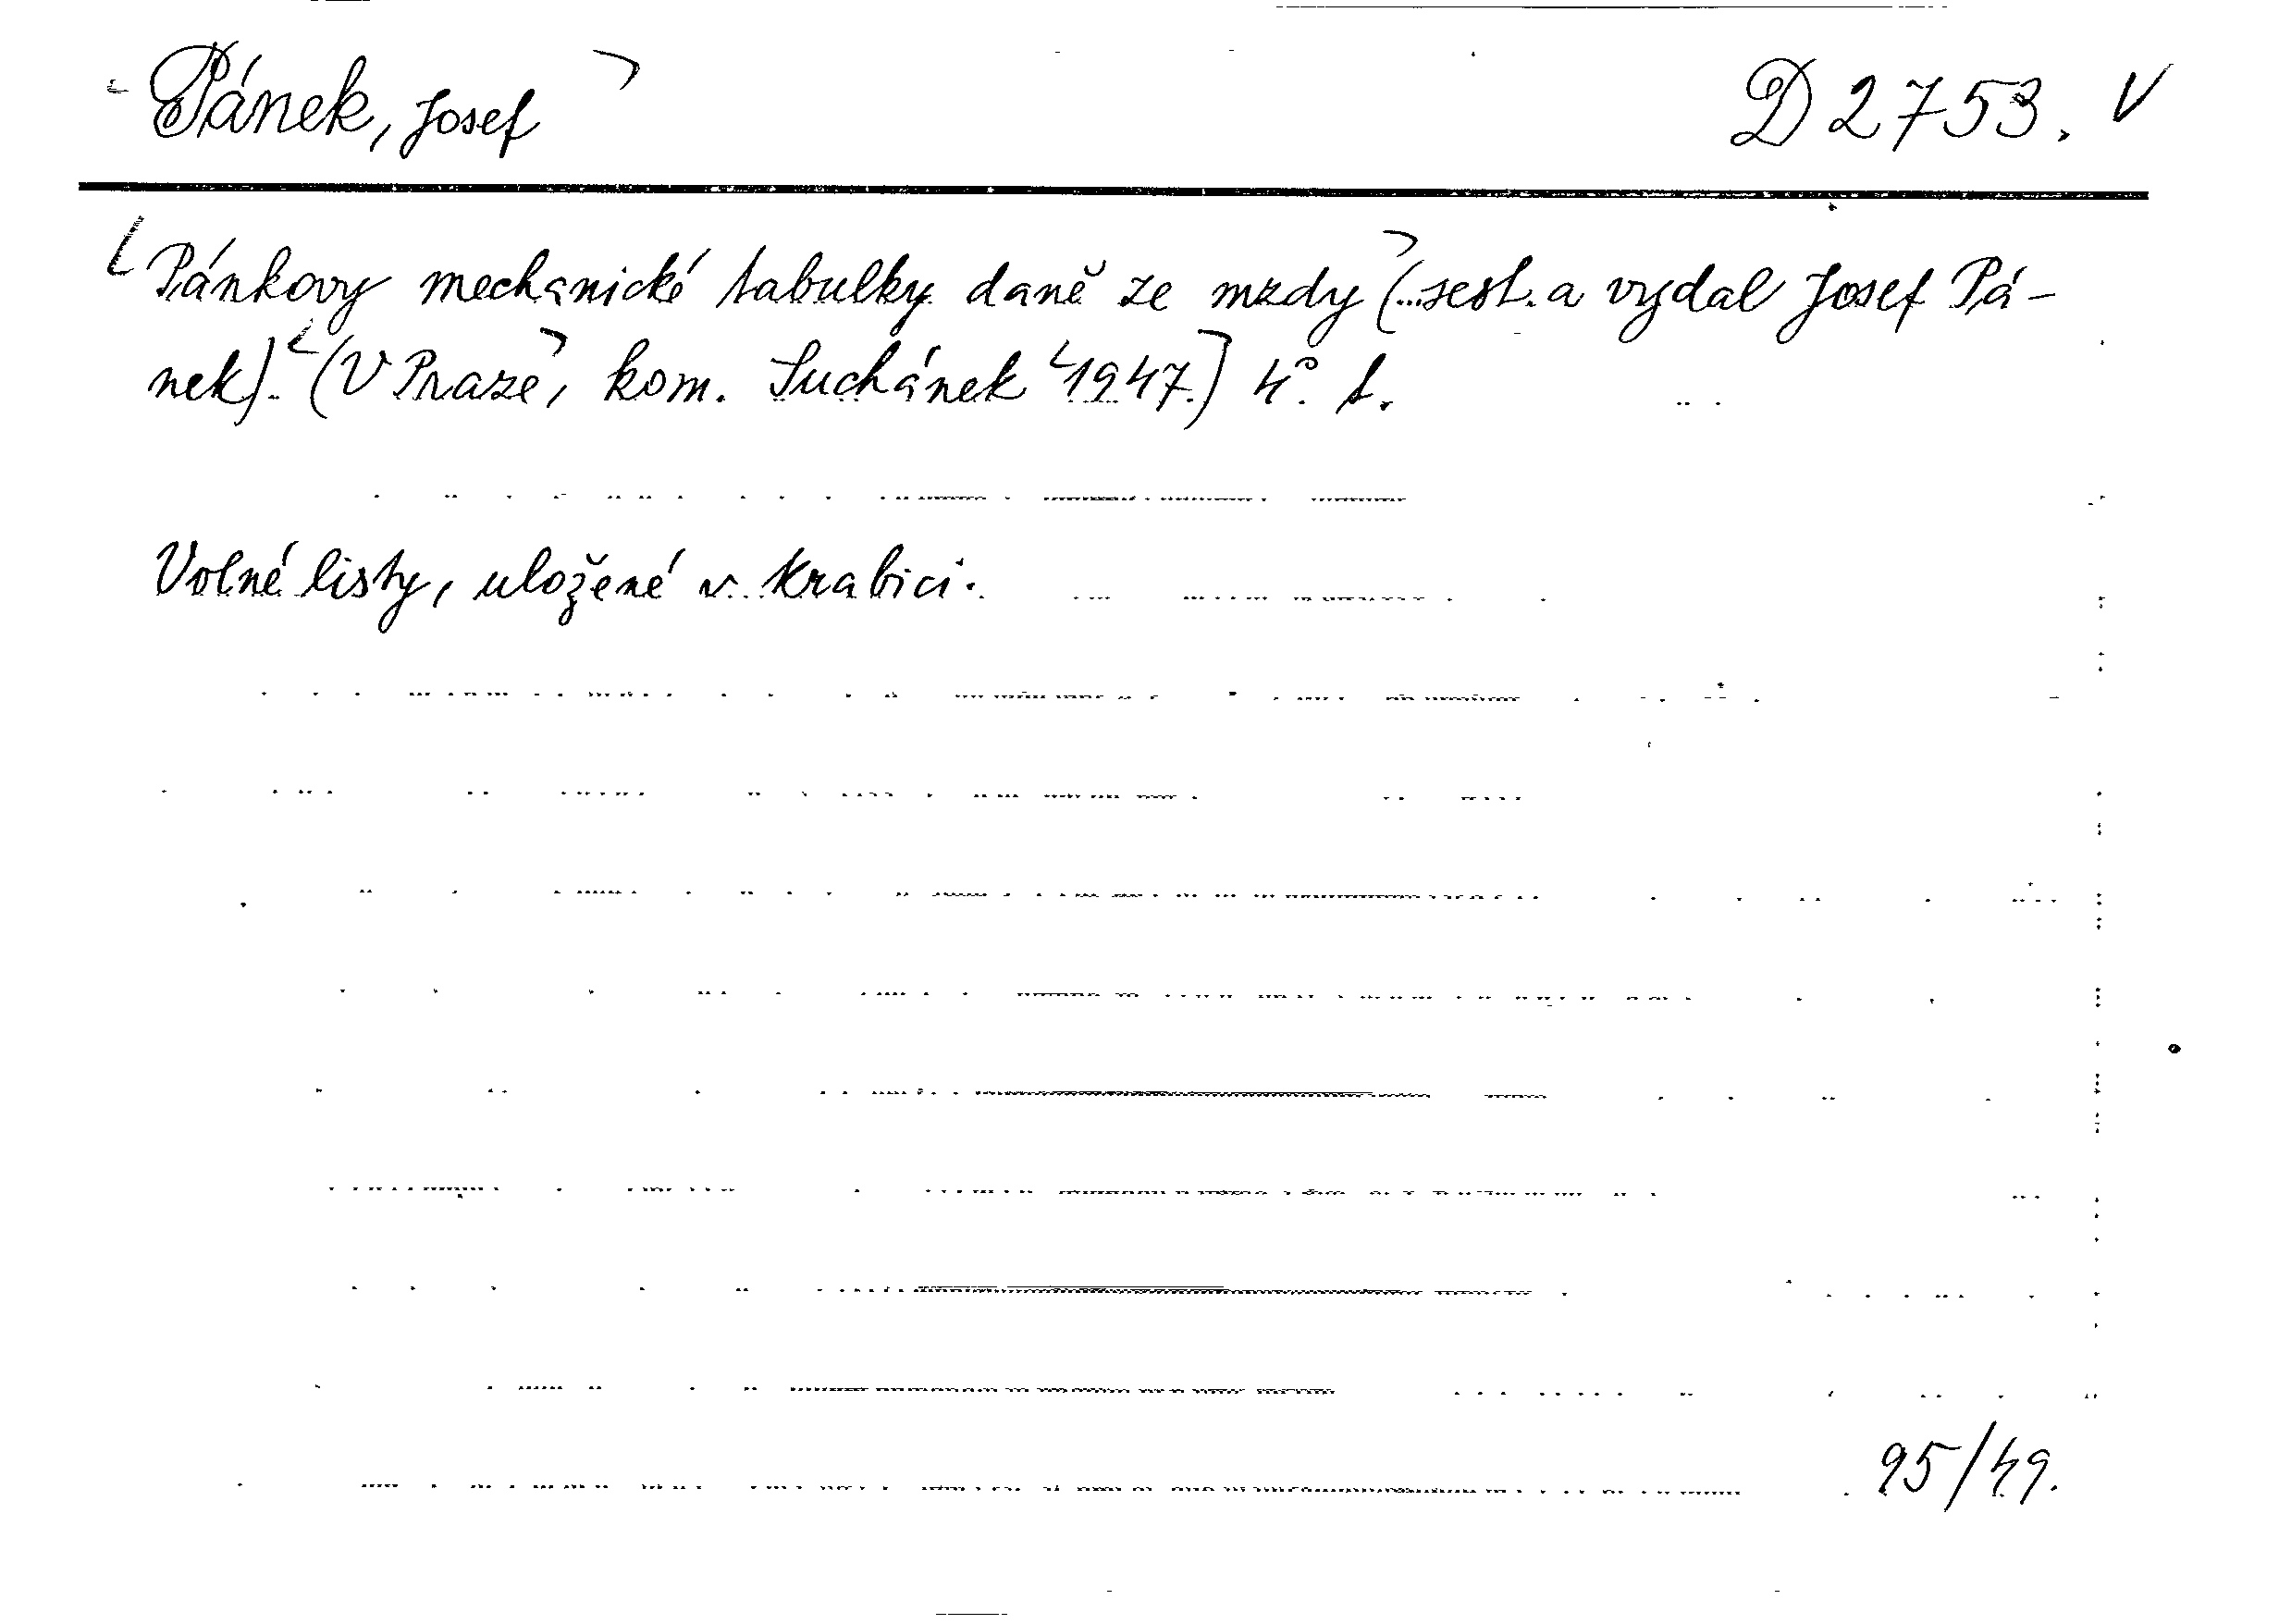 Pánek, Josef D 2753. V
Pánkovy mechanické tabulky daně ze mzdy (...sest. a vydal Josef Pá-
nek). (V Praze, kom. Suchánek 1947.) 4°. f.
Volné listy, uložené v krabici.
95/49.